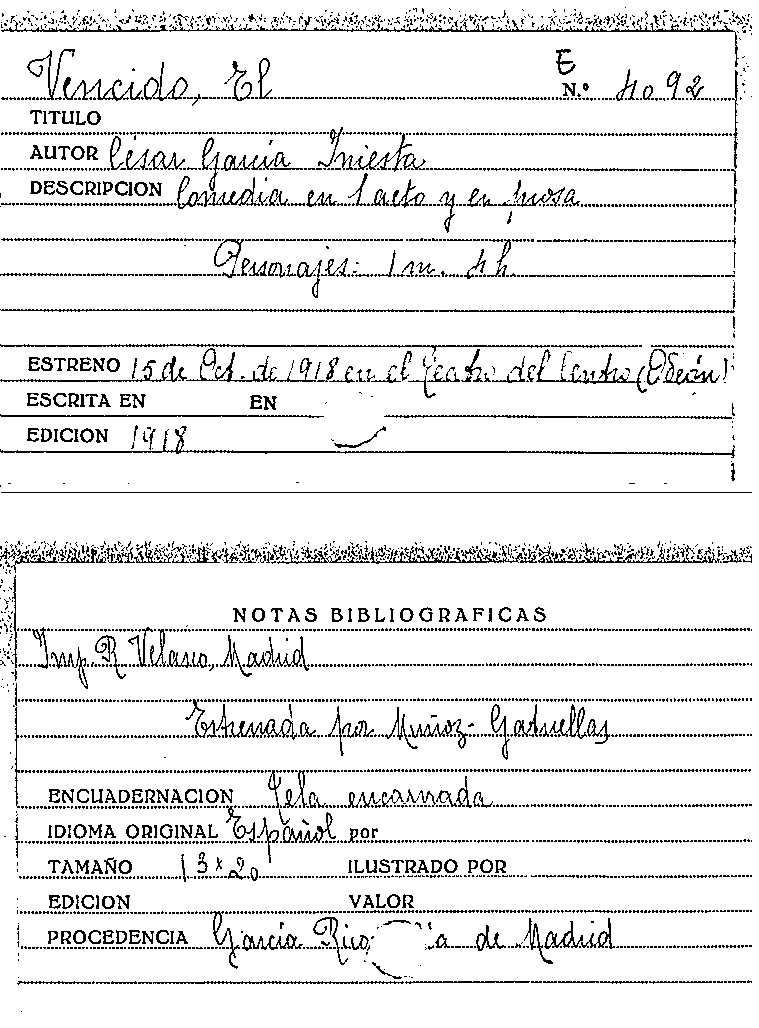 Vencido, El
E
N.º 4092
TITULO
AUTOR César García Iniesta
DESCRIPCION Comedia en 1 acto y en prosa
Personajes: 1 m. 4 h.
ESTRENO 15 de Oct. de 1918 en el Teatro del Centro (Odeón)
ESCRITA EN EN
EDICION 1918
NOTAS BIBLIOGRAFICAS
Imp. R. Velasco, Madrid
Estrenada por Muñoz-
ENCUADERNACION Tela encarnada
IDIOMA ORIGINAL Español por
TAMAÑO 13 x 20 ILUSTRADO POR
EDICION VALOR
PROCEDENCIA García Rico de Madrid